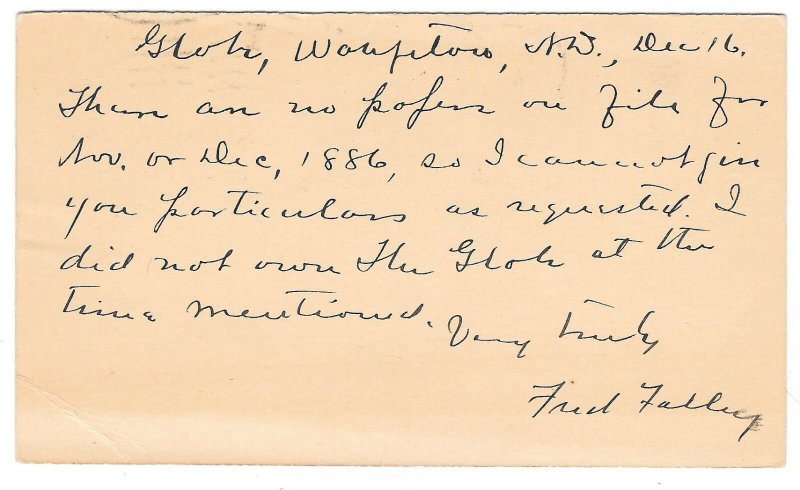 Globe, Wahpeton, N.D., Dec 16.
There are no papers on file for
Nov. or Dec, 1886, so I can not give
you particulars as requested. I
did not own The Globe at the
time mentioned.
Very truly
Fred Falley